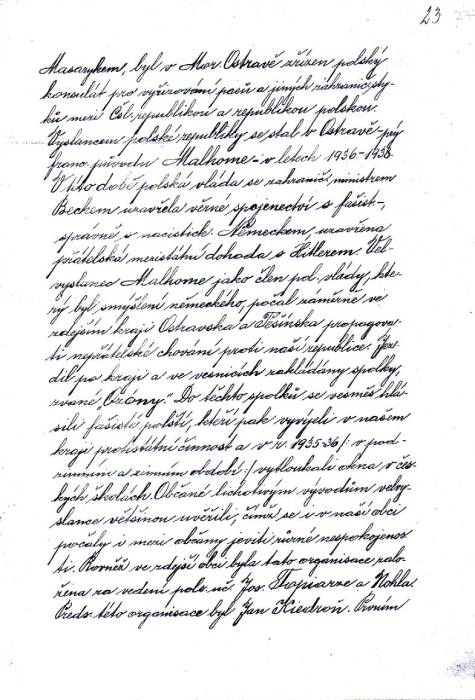 23
Masarykem, byl v Mor. Ostravě zřízen polský
konsulát pro vyřizování pasů a jiných zahranič. sty-
ků mezi Čsl. republikou a republikou polskou.
Vyslancem polské republiky se stal v Ostravě - prý
franc. původu Malhome - v letech 1936-1938.
V této době polská vláda se zahranič. ministrem
Beckem uzavřela věrné spojenectví s fašist.,
správně s nacistick. Německem, uzavřena
přátelská mezistátní dohoda s Hitlerem. Vel-
vyslanec Malhome jako člen pol. vlády, kte-
rý byl smýšlení německého, počal záměrně ve
zdejším kraji Ostravska a Těšínska propagova-
ti nepřátelské chování proti naší republice. Jez-
dil po kraji a ve vesnicích zakládány spolky,
zvané „Ozony." Do těchto spolků se vesměs hlá-
sili fašisté polští, kteří pak vyvíjeli v našem
kraji protistátní činnost a v r. 1935-36 /: v pod-
zimním a zimním období :/ vytloukali okna v čes-
kých školách. Občané lichotivým vývodům velvy-
slance většinou uvěřili, čímž se i v naší obci
počaly i mezi občany jeviti různé nespokojenos-
ti. Rovněž ve zdejší obci byla tato organisace zalo-
žena za vedení pols. uč. Jos. Topiarze a Nohla.
Předs. této organisace byl Jan Kiedroň. Prvním